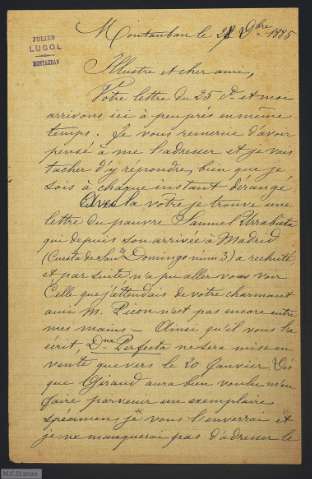 JULIEN
LUGOL
MONTAUBAN
Montauban le 28 Xbre 1885
Illustre et cher ami,
Votre lettre du 25 Ct et moi
arrivons ici à peu près en même
temps. Je vous remercie d'avoir
pensé à me l'adresser et je vais
tacher d'y répondre, bien que je
sois à chaque instant dérangé
Avec la votre je trouve une
lettre du pauvre Samuel Urrabieta
qui depuis son arrivée à Madrid
(Cuesta de Santo Domingo num 3) a rechuté
et par suite n'a pu aller vous voir
Celle que j'attendais de votre charmant
ami M. Picon n'est pas encore entre
mes mains — Ainsi qu'il vous l'a
écrit, Dña Perfecta ne sera mise en
vente que vers le 20 Janvier. Dès
que Giraud aura bien voulu m'en
faire parvenir un exemplaire
spécimen, je vous l'enverrai et
je ne manquerai pas d'adresser le